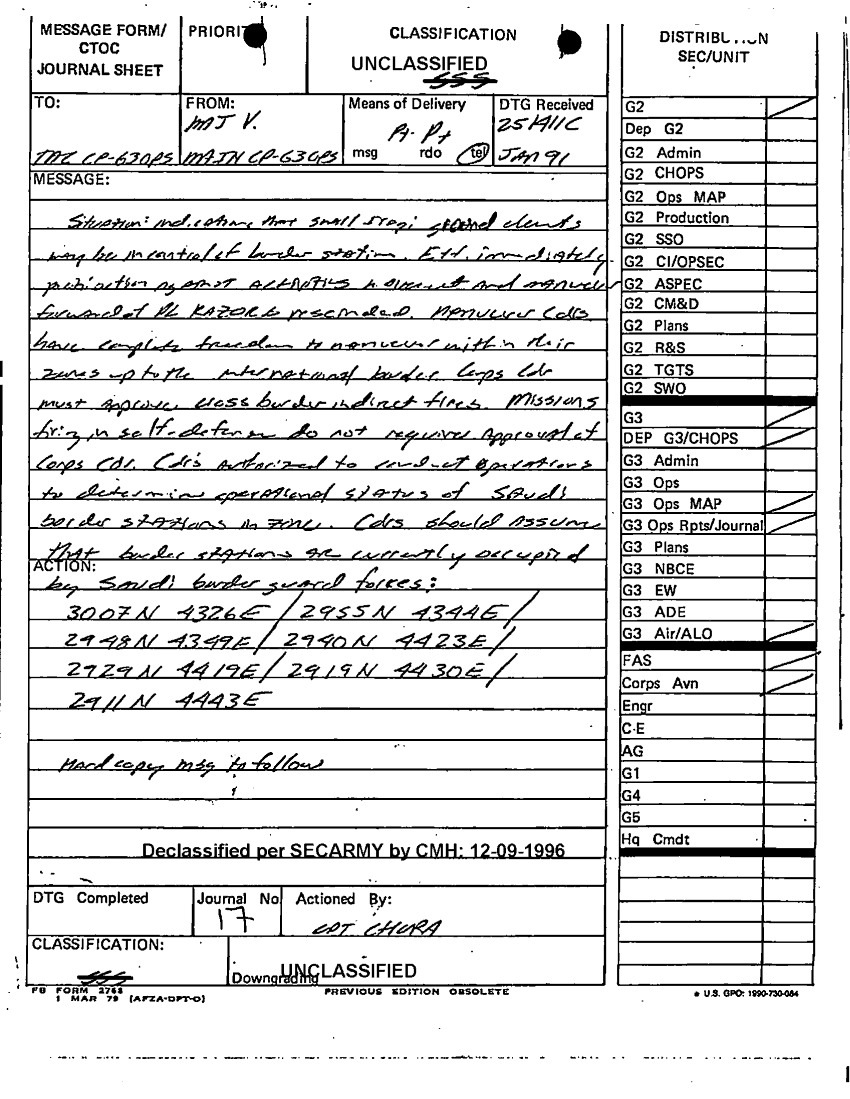 MESSAGE FORM/
CTOC
JOURNAL SHEET
PRIORIT
CLASSIFICATION
UNCLASSIFIED
TO:
TAC CP-G3OPS
FROM:
MAJ V.
MAIN CP-G3OPS
Means of Delivery
msg rdo tel
DTG Received
251411C
JAN 91
MESSAGE:
Situation: indications that small Iraqi ground elements
may be in control of border station. Eff. immediately
prohibition against and maneuver
forward of PL RAZOR is rescinded. Maneuver Cdrs
have complete freedom to maneuver within their
zones up to the international border. Corps Cdr
must approve cross border indirect fires. Missions
firing in self-defense do not require approval of
Corps Cdr. Cdrs authorized to conduct operations
to determine operational status of Saudi
border stations in zone. Cdrs should assume
that border stations are currently occupied
ACTION:
by Saudi border guard forces:
3007N 4326E / 2955N 4344E /
2948N 4349E / 2940N 4423E /
2929N 4419E / 2919N 4430E /
2911N 4443E
Hard copy msg to follow
Declassified per SECARMY by CMH: 12-09-1996
DTG Completed
Journal No
17
Actioned By:
CPT CHURA
CLASSIFICATION:
Downgrading
UNCLASSIFIED
FB FORM 2768
1 MAR 79 (AFZA-DPT-O)
PREVIOUS EDITION OBSOLETE
DISTRIBUTION
SEC/UNIT
G2
Dep G2
G2 Admin
G2 CHOPS
G2 Ops MAP
G2 Production
G2 SSO
G2 CI/OPSEC
G2 ASPEC
G2 CM&D
G2 Plans
G2 R&S
G2 TGTS
G2 SWO
G3
DEP G3/CHOPS
G3 Admin
G3 Ops
G3 Ops MAP
G3 Ops Rpts/Journal
G3 Plans
G3 NBCE
G3 EW
G3 ADE
G3 Air/ALO
FAS
Corps Avn
Engr
C-E
AG
G1
G4
G5
Hq Cmdt
★ U.S. GPO: 1990-730-084